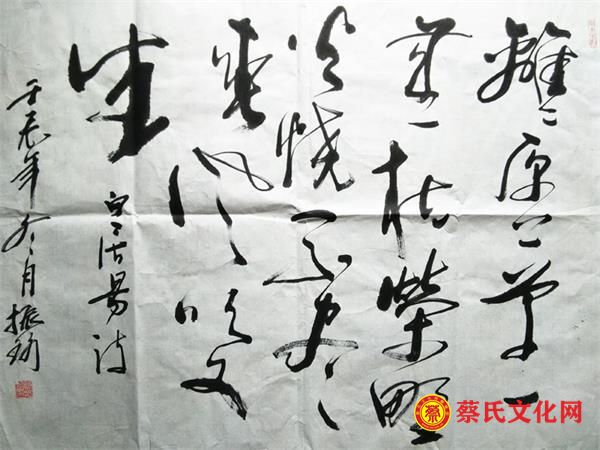 離〻原上草一
歲枯榮野
火燒不盡
春风吹又
生
白居易诗
壬辰年冬月振
蔡
蔡氏文化网